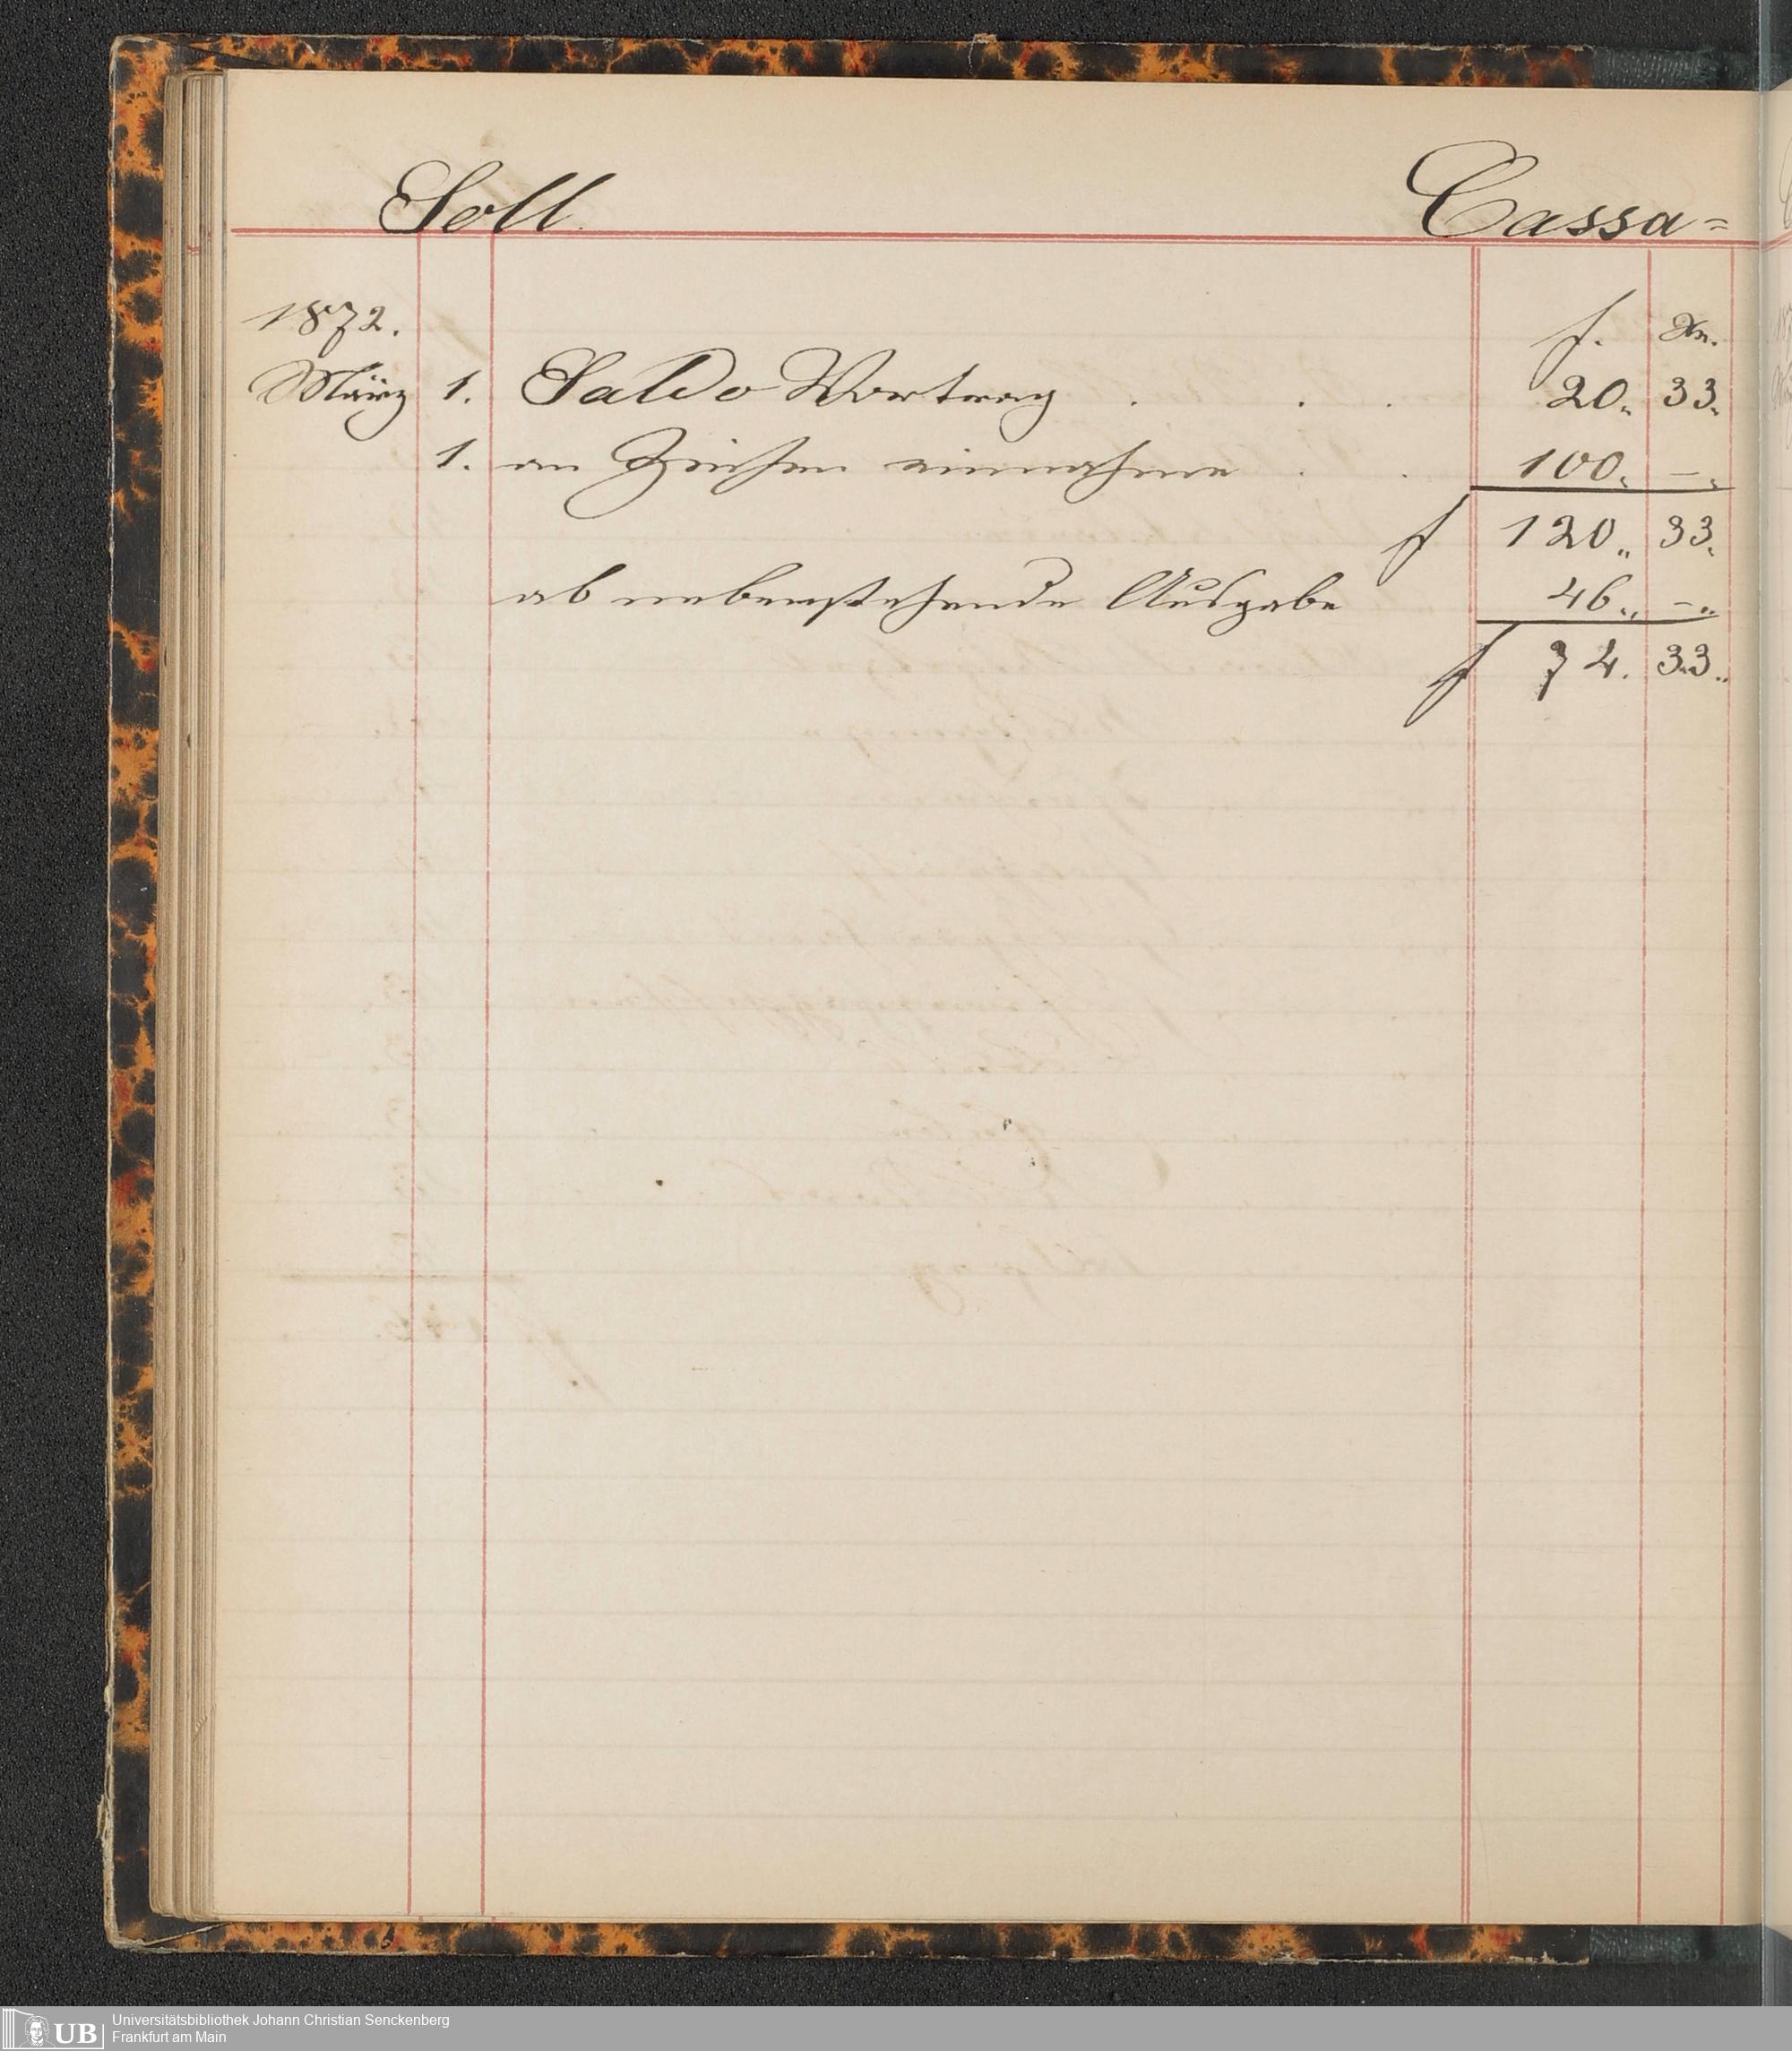 Soll. Cassa=
1872. f. Xr.
März 1. Saldo Vortrag . . . 20. 33.
1. an Zinsen einnahme . . 100. –.
f 120.. 33.
ab nebenstehende Ausgabe 46.. –..
f 74. 33..
UB Universitätsbibliothek Johann Christian Senckenberg
Frankfurt am Main